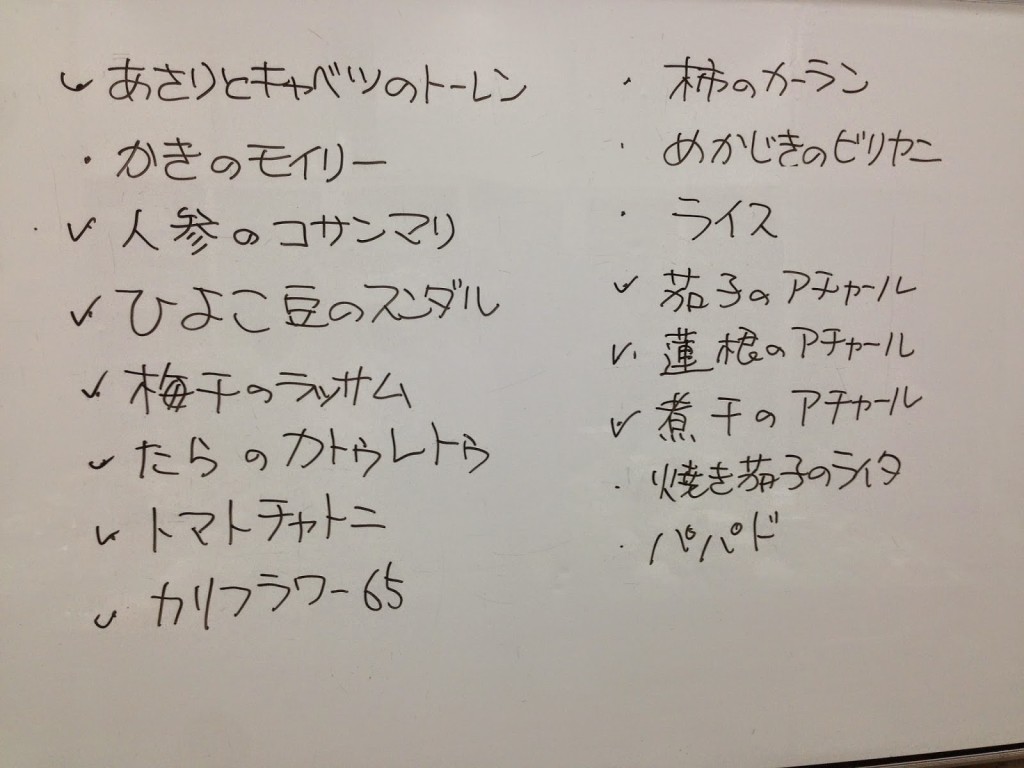 ✓ あさりとキャベツのトーレン
・ かきのモイリー
✓ 人参のコサンマリ
✓ ひよこ豆のスンダル
✓ 梅干のラッサム
✓ たらのカトゥレトゥ
✓ トマトチャトニ
✓ カリフラワー65
・ 柿のカーラン
・ めかじきのビリヤニ
・ ライス
✓ 茄子のアチャール
✓ 蓮根のアチャール
✓ 煮干のアチャール
・ 焼き茄子のライタ
・ パパド